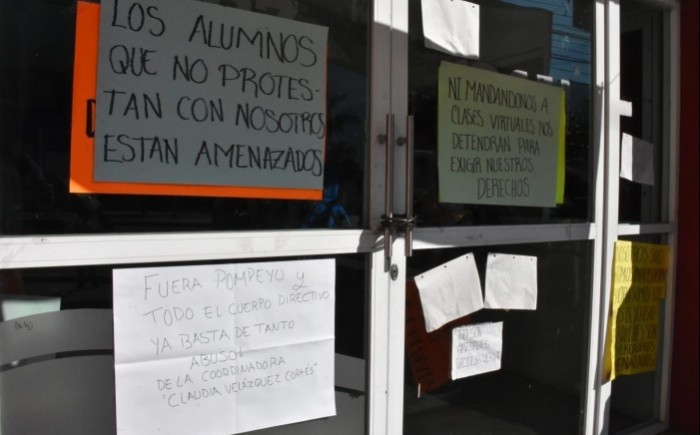 LOS ALUMNOS
QUE NO PROTES-
TAN CON NOSOTROS
ESTAN AMENAZADOS
NI MANDANDONOS A
CLASES VIRTUALES NOS
DETENDRAN PARA
EXIGIR NUESTROS
DERECHOS
FUERA POMPEYO Y
TODO EL CUERPO DIRECTIVO
YA BASTA DE TANTO
ABUSO!
DE LA COORDINADORA
"CLAUDIA VELÁZQUEZ CORTÉS"